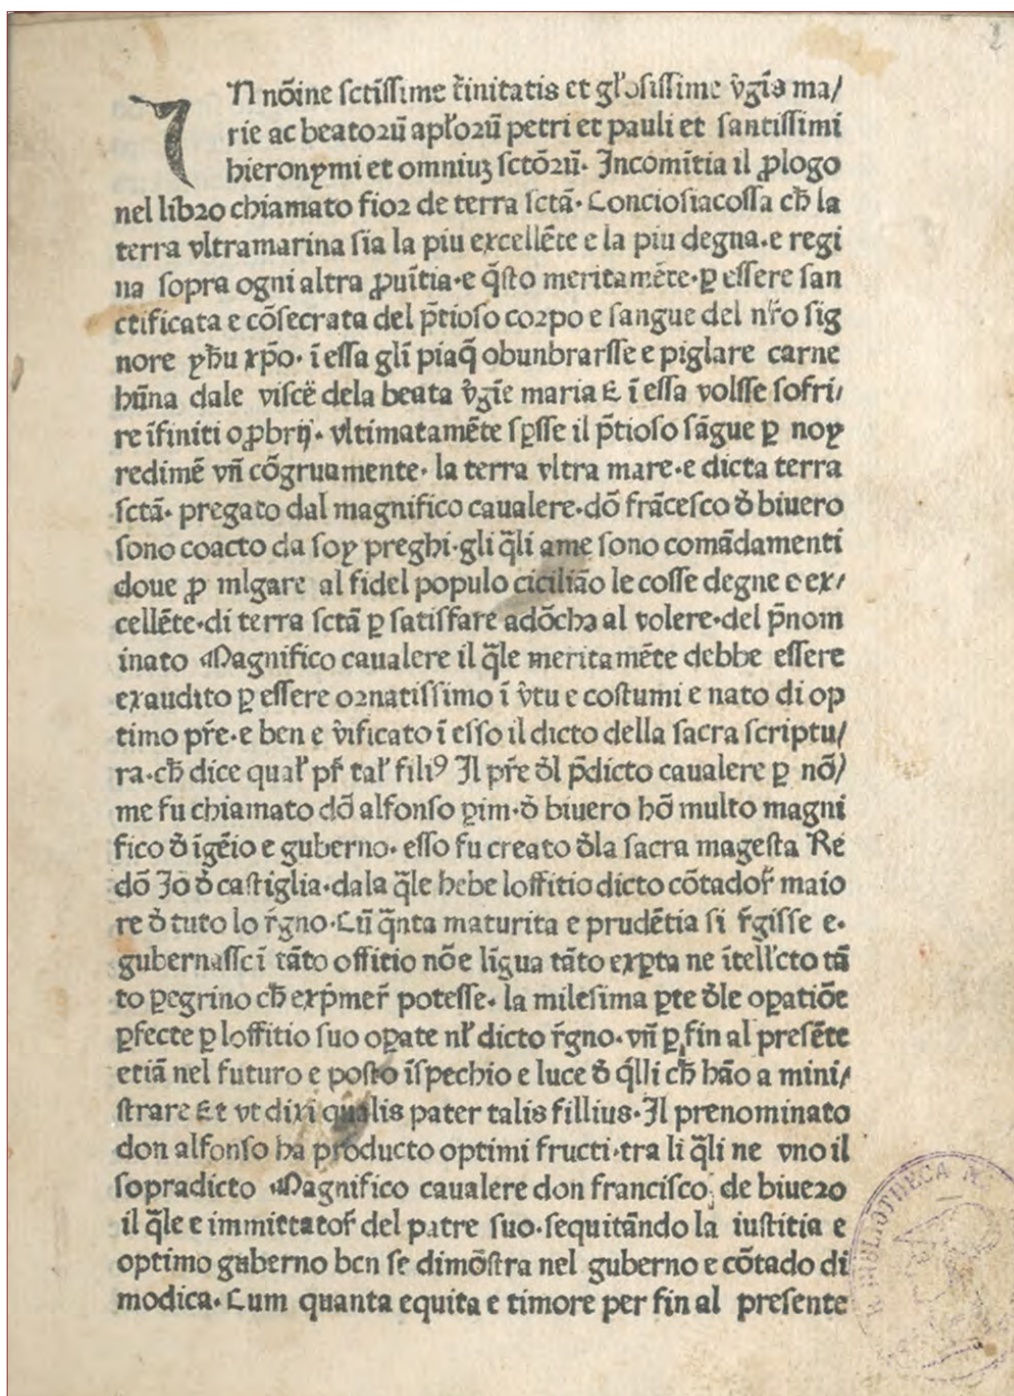 2
IN nōine sctīssime t̄initatis et gło̵sissime v̄gīs ma/
rie ac beatoꝝū apłoꝝū petri et pauli et santissimi
hieronymi et omniuꝫ sctōꝝū. Incomītia il ꝓlogo
nel libꝛo chiamato fioꝛ de terra sctā. Conciosiacossa cħ la
terra vltramarina sia la piu excellēte e la piu degna. e regi
na sopra ogni altra ꝓuītia. e q̄sto meritamēte. ꝑ essere san
ctificata e cōsecrata del p̄tioso coꝛpo e sangue del nr̄o sig
nore yħu xp̄o. ī essa glī piaq̄ obunbrarsse e piglare carne
hūna dale viscē dela beata v̄gīe maria & ī essa volsse sofri/
re īfiniti oꝓbrij. vltimatamēte sꝑsse il p̄tioso sāgue ꝑ noy
redimē vn̄ cōgruamente. la terra vltra mare. e dicta terra
sctā. pregato dal magnifico caualere. dō frācesco ð biuero
sono coacto da soy preghi. gli q̄li ame sono comādamenti
doue ꝓ mlgare al fidel populo ciciliāo le cosse degne e ex/
cellēte. di terra sctā ꝑ satisfare adōcha al volere. del p̄nom
inato Magnifico caualere il q̄le meritamēte debbe essere
exaudito ꝑ essere oꝛnatissimo ī v̄tu e costumi e nato di op
timo pr̄e. e ben e v̄ificato ī esso il dicto della sacra scriptu/
ra. cħ dice quał pr̄ tał filiꝰ Il pr̄e ðl p̄dicto caualere ꝑ nō/
me fu chiamato dō alfonso ꝑim. ð biuero hō multo magni
fico ð īgēio e guberno. esso fu creato ðla sacra magesta Re
dō Jo ð castiglia. dala q̄le hebe loffitio dicto cōtador̄ maio
re ð tuto lo r̄gno. Cū q̄nta maturita e prudētia si r̄gisse e.
gubernasse ī tāto offitio nō e līgua tāto exꝑta ne ītełcto tā
to ꝑegrino cħ exp̄mer̄ potesse. la milesima ꝑte ðle oꝑatiōe
ꝑfecte ꝑ loffitio suo oꝑate nł dicto r̄gno. vn̄ ꝑ fin al presēte
etiā nel futuro e posto īspechio e luce ð q̄lli cħ hāo a mini/
strare Et vt dixi qualis pater talis fillius. Il prenominato
don alfonso ha producto optimi fructi. tra li q̄li ne vno il
sopradicto Magnifico caualere don francisco de biueꝛo
il q̄le e immittator̄ del patre suo. sequitādo la iustitia e
optimo guberno ben se dimōstra nel guberno e cōtado di
modica. Cum quanta equita e timore per fin al presente
BIBLIOTHECA